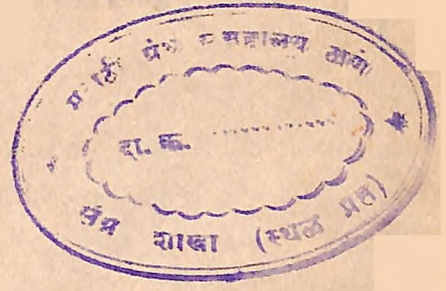 मराठी ग्रंथ संग्रहालय ठाणे
दा. क. ................
क्षेत्र शाखा (स्थळ प्रत)